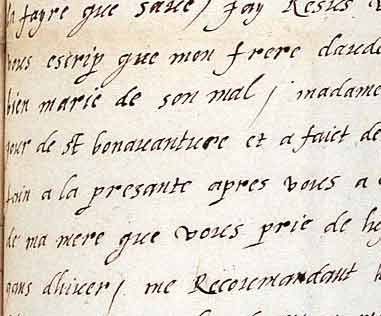 la fayre que saue / Jay Resus v
vous escrip que mon frere daude
bien marie de son mal / madame
jour de St bonauanture et a faict de
a la presante apres vous a
de ma mere que vous prie de
gans dhiuer / me Recoumandant